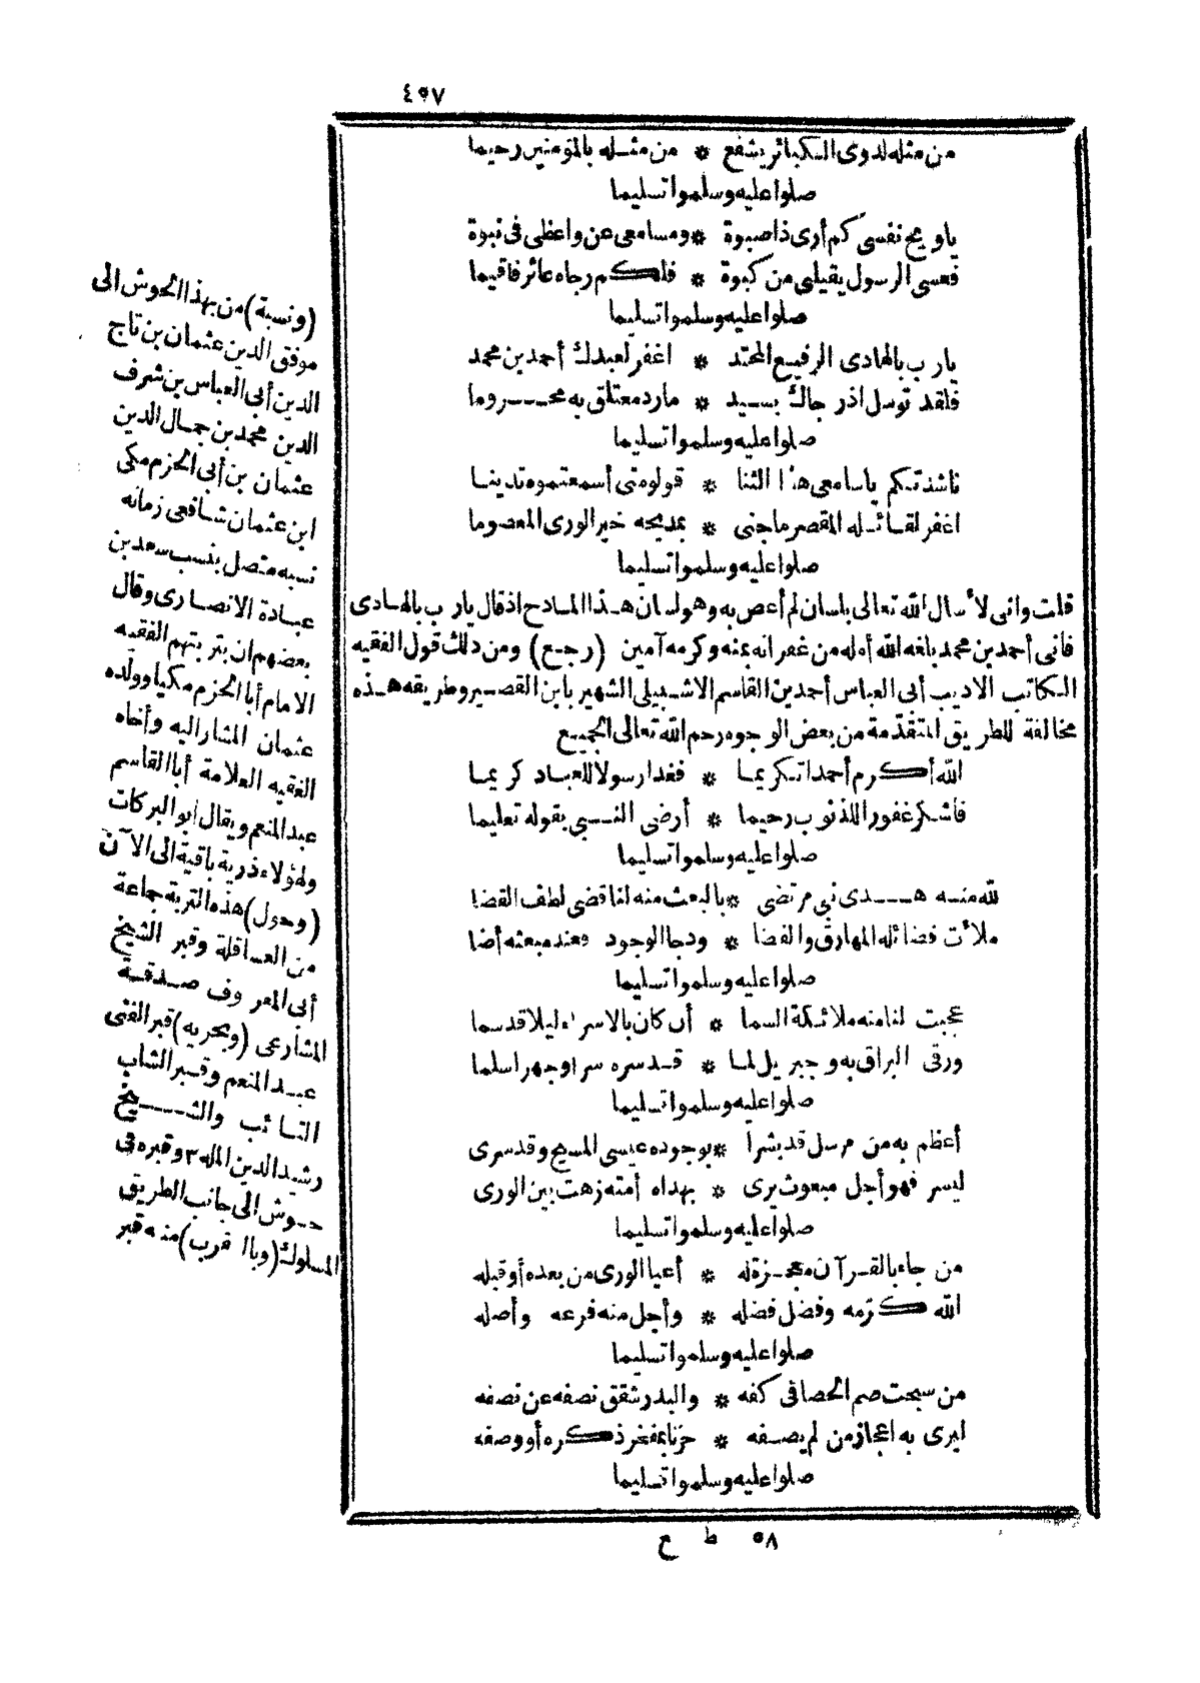 ٤٥٧
من مثله لذوى الكبائر يشفع * من مثله بالمؤمنين رحيما
صلوا عليه وسلموا تسليما
ياويح نفسى كم أرى ذا صبوة * ومسامعى عن واعظى فى نبوة
فعسى الرسول يقيلنى من كبوة * فلكم رجاه عاثر فاقيما
صلوا عليه وسلموا تسليما
يارب بالهادى الرفيع المحتد * اغفر لعبدك أحمد بن محمد
فلقد توسل اذ رجاك بسيد * مارد معتلق به محروما
صلوا عليه وسلموا تسليما
ناشدتكم ياسامعى هذا الثنا * قولوا متى أسمعتموه تدينا
اغفر لقائله المقصر ماجنى * بمديحه خير الورى المعصوما
صلوا عليه وسلموا تسليما
قلت وانى لأسأل الله تعالى بلسان لم أعص به وهو لسان هذا المادح اذ قال يارب بالهادى
فانى أحمد بن محمد بلغه الله أمله من غفرانه بمنه وكرمه آمين (رجع) ومن ذلك قول الفقيه
الكاتب الاديب أبى العباس أحمد بن القاسم الاشبيلى الشهير بابن القصير وطريقه هذه
مخالفة للطريق المتقدّمة من بعض الوجوه رحم الله تعالى الجميع
الله أكرم أحمدا تكريما * فغدا رسولا للعباد كريما
فاشكر غفورا للذنوب رحيما * أرضى النبى بقوله تعليما
صلوا عليه وسلموا تسليما
لله منه هدى نبى مرتضى * بالبعث منه لنا قضى لطف القضا
ملأت فضائله المهارق والفضا * ودجا الوجود فعند مبعثه أضا
صلوا عليه وسلموا تسليما
عجبت لنا منه ملائكة السما * أن كان بالاسراء ليلا قد سما
ورقى البراق به وجبريل لما * قد سره سرا وجهرا سلما
صلوا عليه وسلموا تسليما
أعظم به من مرسل قد بشرا * بوجوده عيسى المسيح وقد سرى
ليسر فهو أجل مبعوث يرى * بهداه أمته زهت بين الورى
صلوا عليه وسلموا تسليما
من جاء بالقرآن معجزة له * أعيا الورى من بعده أو قبله
الله كرّمه وفضل فضله * وأجل منه فرعه وأصله
صلوا عليه وسلموا تسليما
من سبحت صم الحصا فى كفه * والبدر شقق نصفه عن نصفه
ليرى به اعجاز من لم يصفه * حزنا بمفخر ذكره أو وصفه
صلوا عليه وسلموا تسليما
(ونسبة) من بهذا الحوش الى
موفق الدين عثمان بن تاج
الدين أبى العباس بن شرف
الدين محمد بن جمال الدين
عثمان بن أبى الحزم مكى
ابن عثمان شافعى زمانه
نسبه متصل بنسب سعد بن
عبادة الانصارى وقال
بعضهم ان بتربتهم الفقيه
الامام أبا الحزم مكيا وولده
عثمان المشار اليه وأخاه
الفقيه العلامة أبا القاسم
عبد المنعم ويقال أبو البركات
ولهؤلاء ذرية باقية الى الآن
(وحول) هذه التربة جماعة
من العساقلة وقبر الشيخ
أبى المعروف صدقة
المشارعى (وبحريه) قبر الفتى
عبد المنعم وقبر الشاب
التائب والشيخ
رشيد الدين وقبره فى
حوش الى جانب الطريق
المسلوك (وبالقرب) منه قبر
٥٨ ط ح